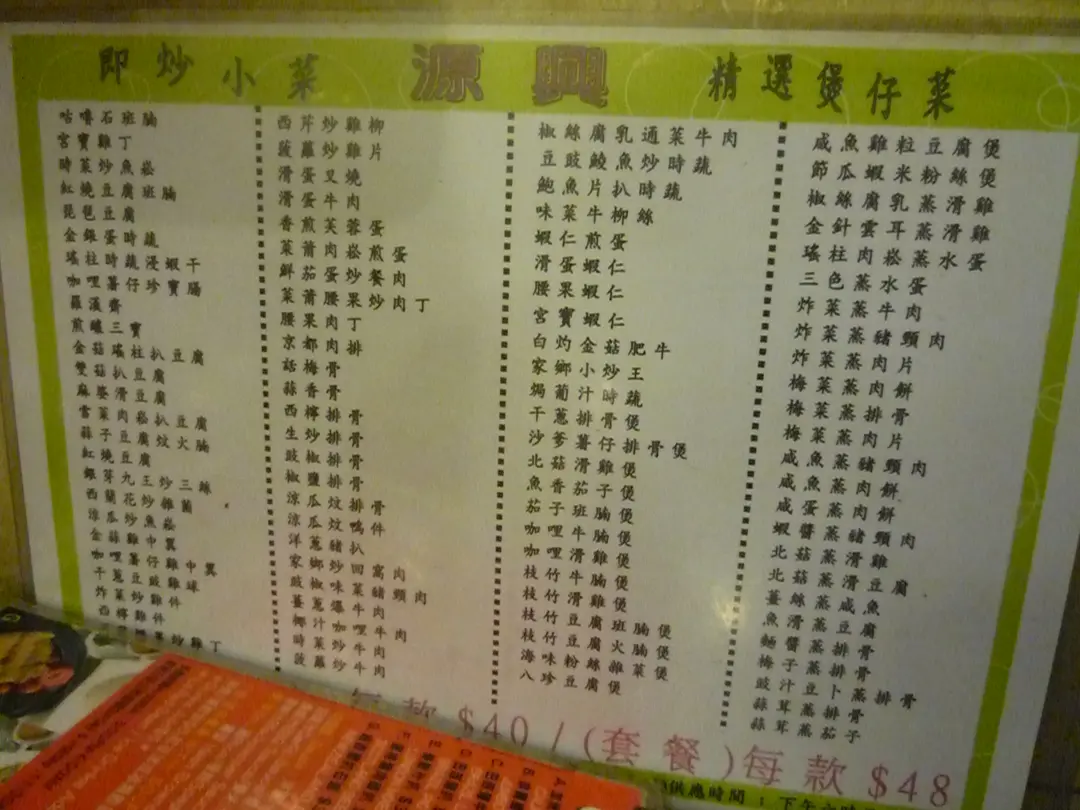 即炒小菜 源興 精選煲仔菜
咕嚕石班腩
宮寶雞丁
時菜炒魚崧
紅燒豆腐班腩
琵琶豆腐
金銀蛋時蔬
瑤柱時蔬浸蝦干
咖哩薯仔珍寶腸
羅漢齋
煎釀三寶
金菇瑤柱扒豆腐
雙菇扒豆腐
麻婆滑豆腐
雪菜肉崧扒豆腐
蒜子豆腐炆火腩
紅燒豆腐
銀芽九王炒三絲
西蘭花炒雜菌
涼瓜炒魚崧
金蒜雞中翼
咖哩薯仔雞中翼
干蔥豆豉雞球
炸菜炒雞件
西檸雞件
西芹炒雞柳
菠蘿炒雞片
滑蛋叉燒
滑蛋牛肉
香煎芙蓉蛋
菜莆肉崧煎蛋
鮮茄蛋炒餐肉
菜莆腰果炒肉丁
腰果肉丁
京都肉排
話梅骨
蒜香骨
西檸排骨
生炒排骨
豉椒排骨
椒鹽排骨
涼瓜炆排骨
涼瓜炆鴨件
洋蔥豬扒
家鄉炒回窩肉
豉椒味菜豬頸肉
薑蔥爆牛肉
椰汁咖哩牛肉
時菜炒牛肉
菠蘿炒牛肉
椒絲腐乳通菜牛肉
豆豉鯪魚炒時蔬
鮑魚片扒時蔬
味菜牛柳絲
蝦仁煎蛋
滑蛋蝦仁
腰果蝦仁
宮寶蝦仁
白灼金菇肥牛
家鄉小炒王
焗葡汁時蔬
干蔥排骨煲
沙爹薯仔排骨煲
北菇滑雞煲
魚香茄子煲
茄子班腩煲
咖哩牛腩煲
咖哩滑雞煲
枝竹牛腩煲
枝竹滑雞煲
枝竹豆腐班腩煲
枝竹豆腐火腩煲
海味粉絲雜菜煲
八珍豆腐煲
咸魚雞粒豆腐煲
節瓜蝦米粉絲煲
椒絲腐乳蒸滑雞
金針雲耳蒸滑雞
瑤柱肉崧蒸水蛋
三色蒸水蛋
炸菜蒸牛肉
炸菜蒸豬頸肉
炸菜蒸肉片
梅菜蒸肉餅
梅菜蒸排骨
梅菜蒸肉片
咸魚蒸豬頸肉
咸魚蒸肉餅
咸蛋蒸肉餅
蝦醬蒸豬頸肉
北菇蒸滑雞
北菇蒸滑豆腐
薑絲蒸咸魚
魚滑蒸豆腐
麵醬蒸排骨
梅子蒸排骨
豉汁豆卜蒸排骨
蒜茸蒸排骨
蒜茸蒸茄子
款 $40 / (套餐) 每款 $48
供應時間：下午六時